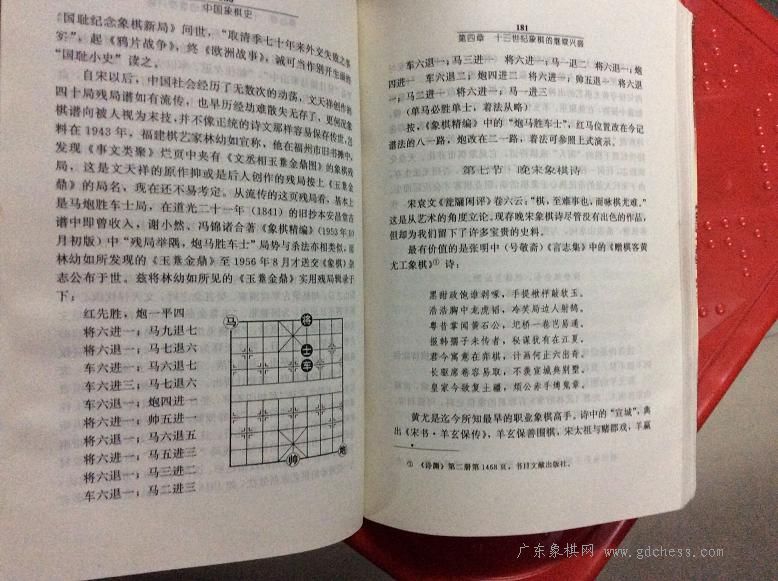 中国象棋史
国耻纪念象棋新局》问世，“取清季七十年来外交失败之事
实”，起《鸦片战争》，终《欧洲战事》，诚可当作别开生面的
“国耻小史”读之。
自宋以后，中国社会经历了无数次的动荡，文天祥创作的
四十局残局谱如有流传，也早历经劫难散失无存了、更何况象
棋谱向被人视为末技，并不像正统的诗文那样容易保存传世。
料在1943年，福建棋艺家林幼如宣称，他在福州市旧书摊中，
发现《事文类聚》烂页中夹有《文丞相玉鼒金鼎图》的象棋残
局，这是文天祥的原作抑或是后人创作的残局按上《玉鼒
金鼎》的局名，现在还不易考定。从流传的这页残局看，基本上
是马炮胜车士局，在道光二十一年（1841）的旧抄本安昌堂
谱中即曾收入，谢小然、冯锦诸合著《象棋精编》（1953年10
月初版）中“残局举隅，炮马胜车士”局势与杀法亦相类似，而
林幼如所发现的《玉鼒金鼎》至1956年8月才送交《象棋》杂
志公布于世。兹将林幼如所见的《玉鼒金鼎》实用残局辑录于
下：
红先胜，炮一平四
将六进一；马九退七
将六退一；马七退六
车六进一；马六退七
车六进三；马七退六
车六退一；炮四进一
将六进一；帅五进一
将六退一；马六退五
将六进一；马五进三
将六退一；马三进二
车六退一；马二进三
马
将
士
车
帅
炮
181
第四章 十三世纪象棋的继续兴盛
车六退一；马三进一 将六进一；马一退二 将六退一；炮
四进一 车六退二；炮四进二 将六进一；帅五退一 将六进
一；马二进一 将六进一；马一进三
（单马必胜单士，着法从略）
按，《象棋精编》中的“炮马胜车士”，红马位置改在今记
谱法的八一路，炮改在二一路，着法可参照上式演示。
第七节 晚宋象棋诗
宋袁文《瓮牖闲评》卷六云：“棋，至难事也，而咏棋尤难。”
这是从艺术的角度立论。现存晚宋象棋诗尽管没有出色的作品，
但却为我们留下了许多宝贵的史料。
最有价值的是张明中（号敬斋）《言志集》中的《赠棋客黄
尤工象棋》① 诗：
黑甜政饱谁剥啄，手提楸枰敲软玉。
浩浩胸中龙虎韬，冷笑局边人射鹄。
粤昔掌闻黄石公，圯桥一卷岂易通。
报韩孺子未传者，秘谋犹有在江夏。
君今寓意在弈棋，计画何止六出奇。
长驱席卷容易取，不羡宣城与别墅。
皇家今欲复土疆，烦公赤手缚鬼章。
黄尤是迄今所知最早的职业象棋高手，诗中的“宣城”，典
出《宋书·羊玄保传》，羊玄保善围棋，宋太祖与赌郡戏，羊赢
① 《诗渊》第二册第1468页，书目文献出版社。
广东象棋网 www.gdchess.com